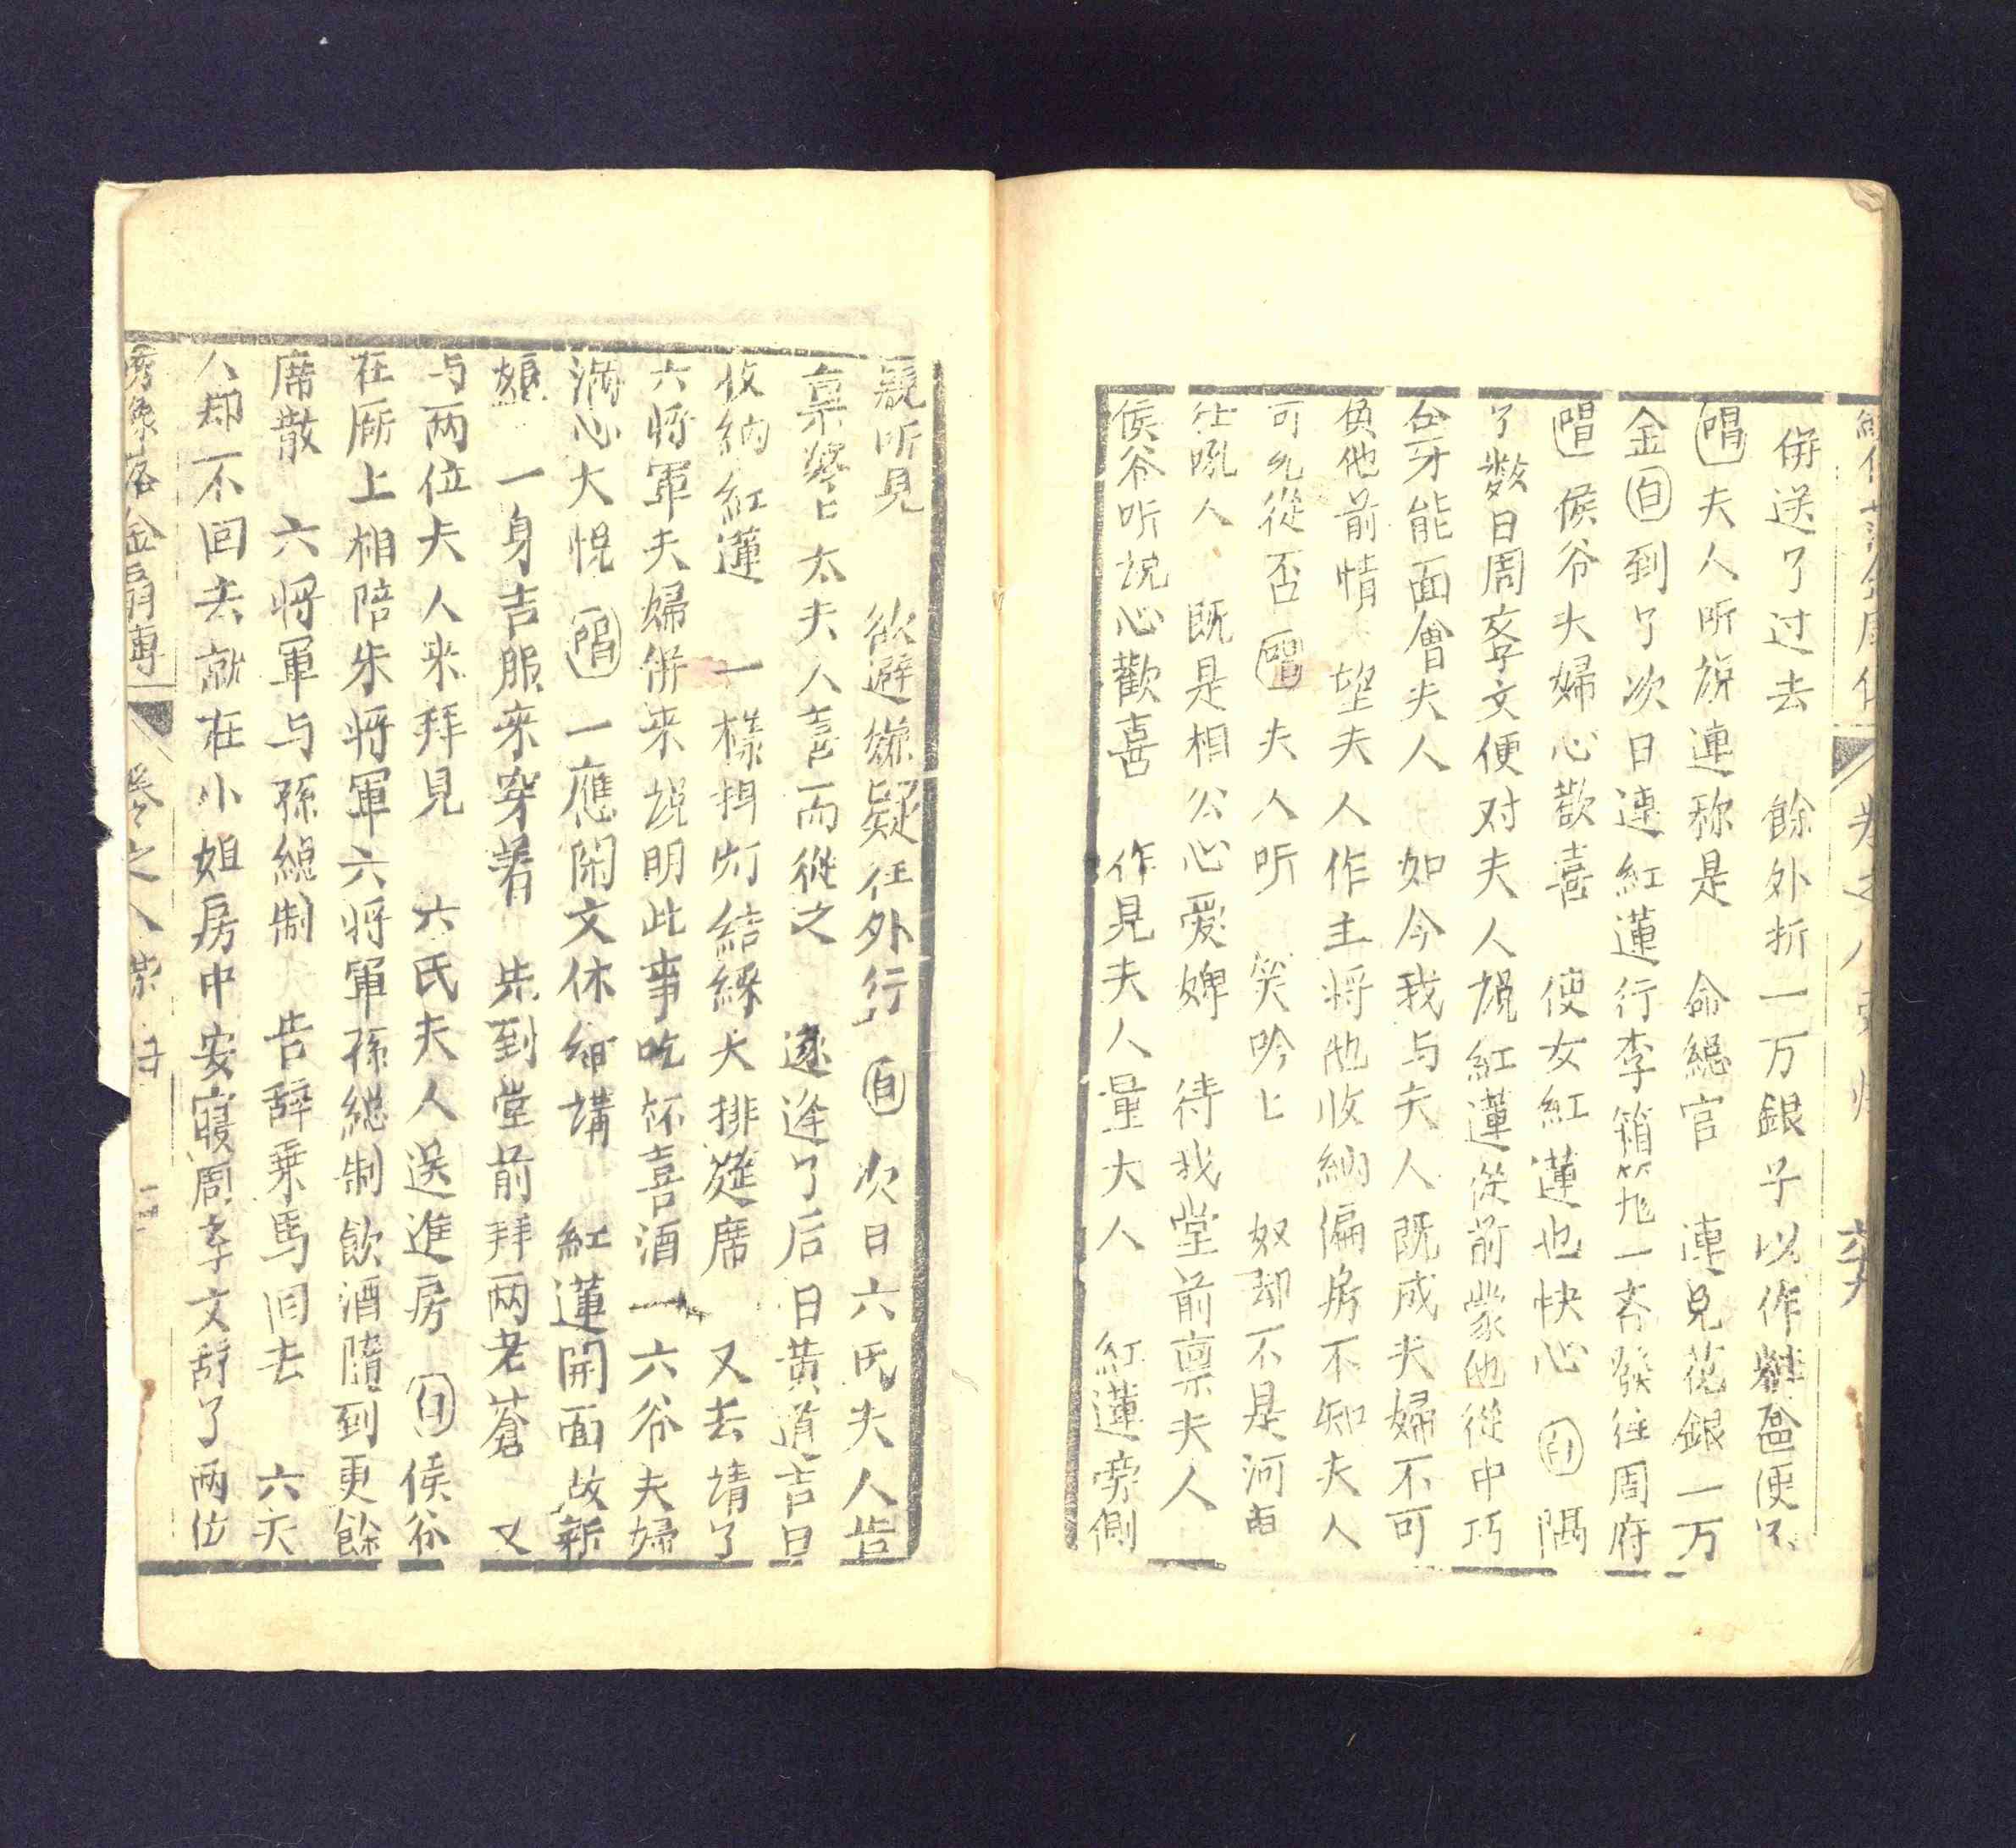 併送了过去　餘外折一万銀子以作粧奩便只
唱夫人听說連称是　命緫官　連兑花銀一万
金白到了次日連紅蓮行李箱籠一齐發往周府
唱侯爷夫婦心歡喜　使女紅蓮也快心　白隔
了数日周孝文便对夫人說紅蓮從前蒙他從中巧
合才能面會夫人　如今我与夫人既成夫婦不可
負他前情　望夫人作主将他收納偏房不知夫人
可允從否唱夫人听　笑吟匕　奴却不是河东
吼人　既是相公心爱婢　待我堂前禀夫人
侯爷听說心歡喜　作見夫人量大人　紅蓮旁側
親听見　欲避嫌疑往外行　白次日六氏夫人皆
禀婆匕太夫人喜而從之　遂迯了后日黄道吉日
收納紅蓮　一樣掛灯結綵大排筵席　又去请了
六将軍夫婦併来說明此事吃杯喜酒一六爷夫婦
满心大悅唱一應閑文休細講　紅蓮開面故新
娘　一身吉服來穿着　先到堂前拜兩老蒼　又
与两位夫人来拜見　六氏夫人送進房　白侯爷
在厛上相陪朱将軍六将軍孫緫制飲酒隨到更餘
席散　六将軍与孫緫制　告辞乗馬囘去　六夫
人却不回去就在小姐房中安寢周孝文辞了两位
绣像落金扇傳　卷之八